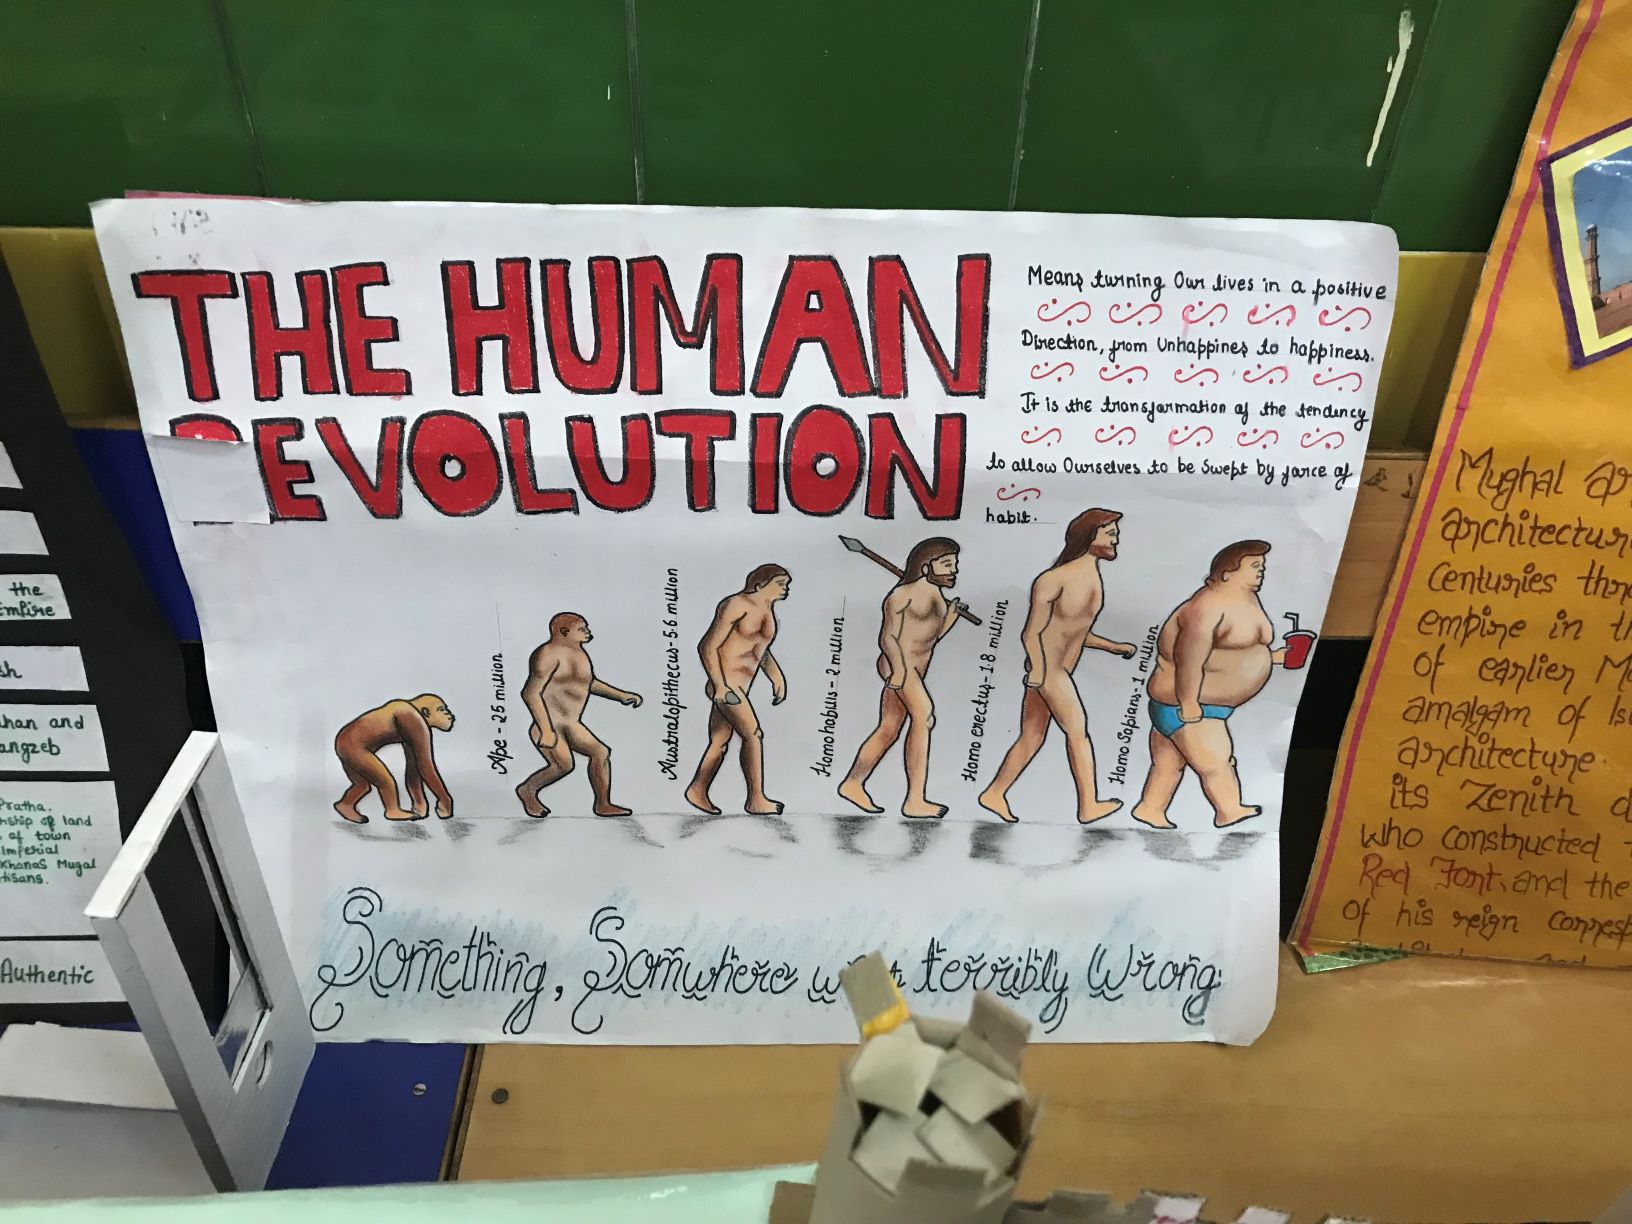 THE HUMAN
REVOLUTION
Means turning Our lives in a positive
Direction, from Unhappines to happiness.
It is the transformation of the tendency
to allow Ourselves to be Swept by force of
habit.
Ape - 25 million
Australopithecus - 5.6 million
Homohabulis - 2 million
Homo erectus - 1.8 million
Homo Sapians - 1 million
Something, Somwhere went terribly Wrong
the
Empire
sh
han and
angzeb
Pratha.
ship of land
of town
Imperial
Khanas Mugal
tisans.
Authentic
Mughal ar
architectur
Centuries thr
empire in th
of earlier M
amalgam of Is
architecture.
its Zenith d
who constructed
Red Font, and the
of his reign corresp